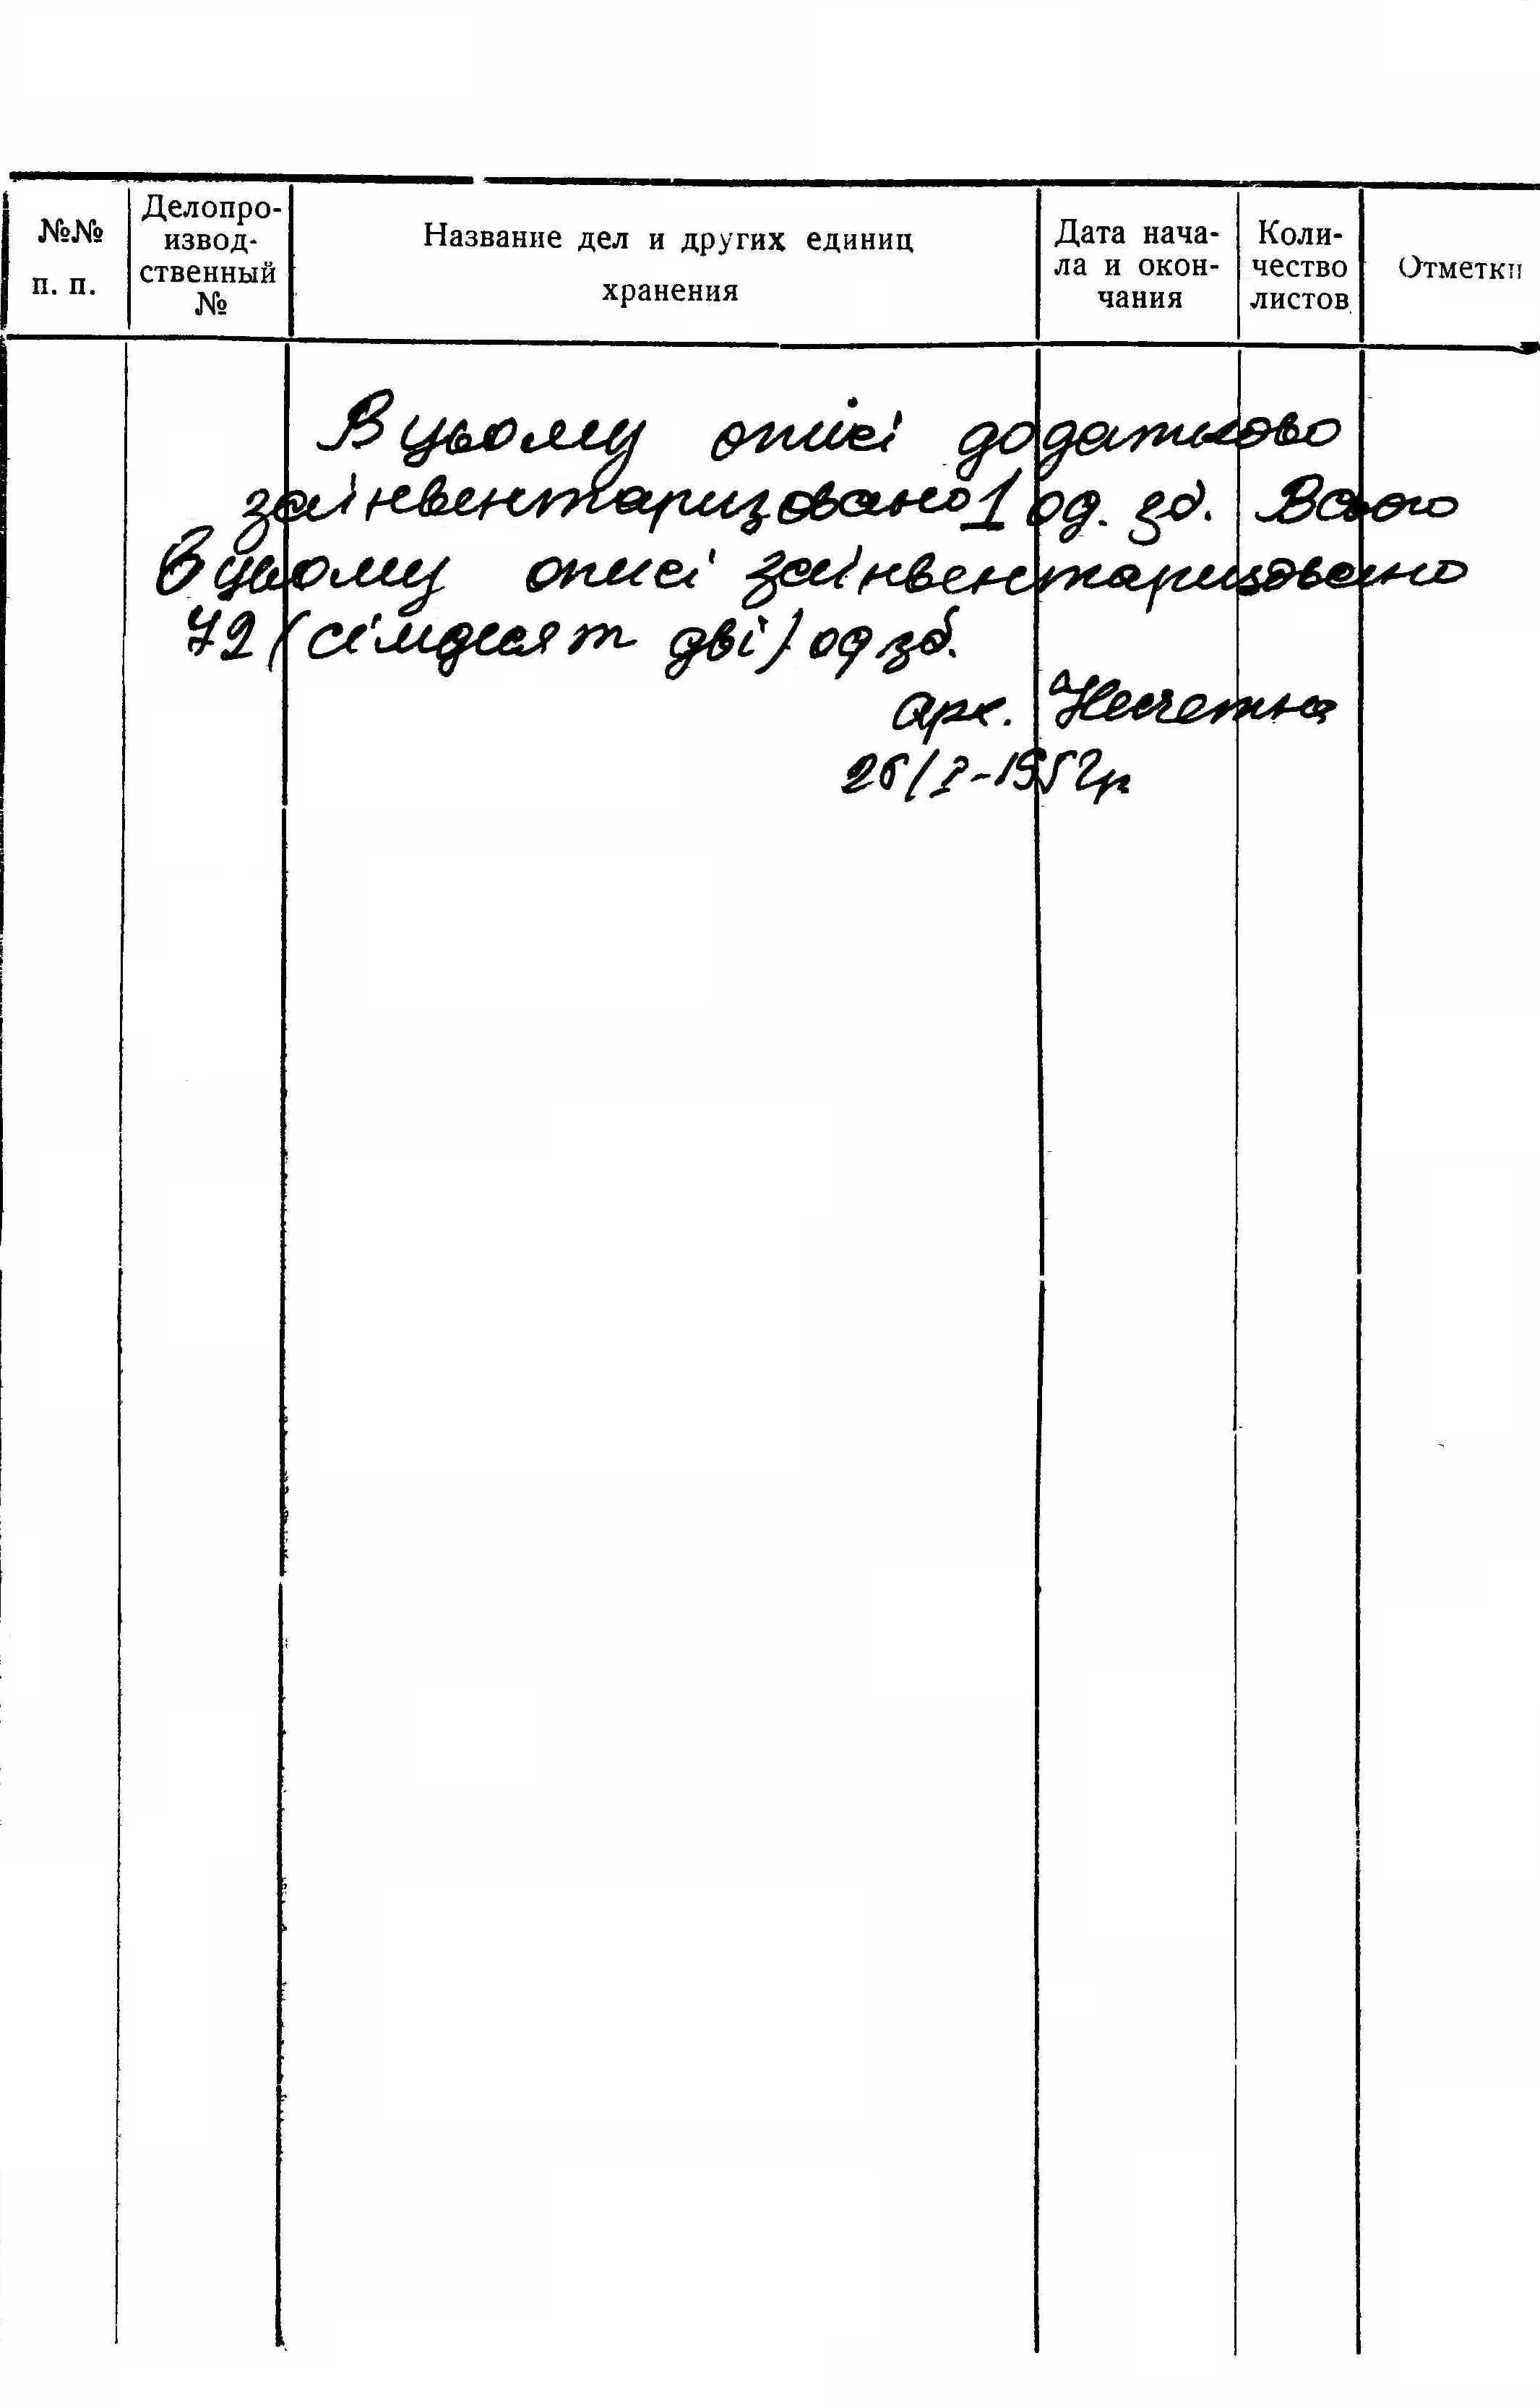 №№ п. п.
Делопро-
извод-
ственный
№
Название дел и других единиц
хранения
Дата нача-
ла и окон-
чания
Коли-
чество
листов
Отметки
В цьому описі додатково
заінвентаризовано 1 од. зб. Всього
в цьому описі заінвентаризовано
72 (сімдесят дві) од зб.
арх.
26/I-195 р